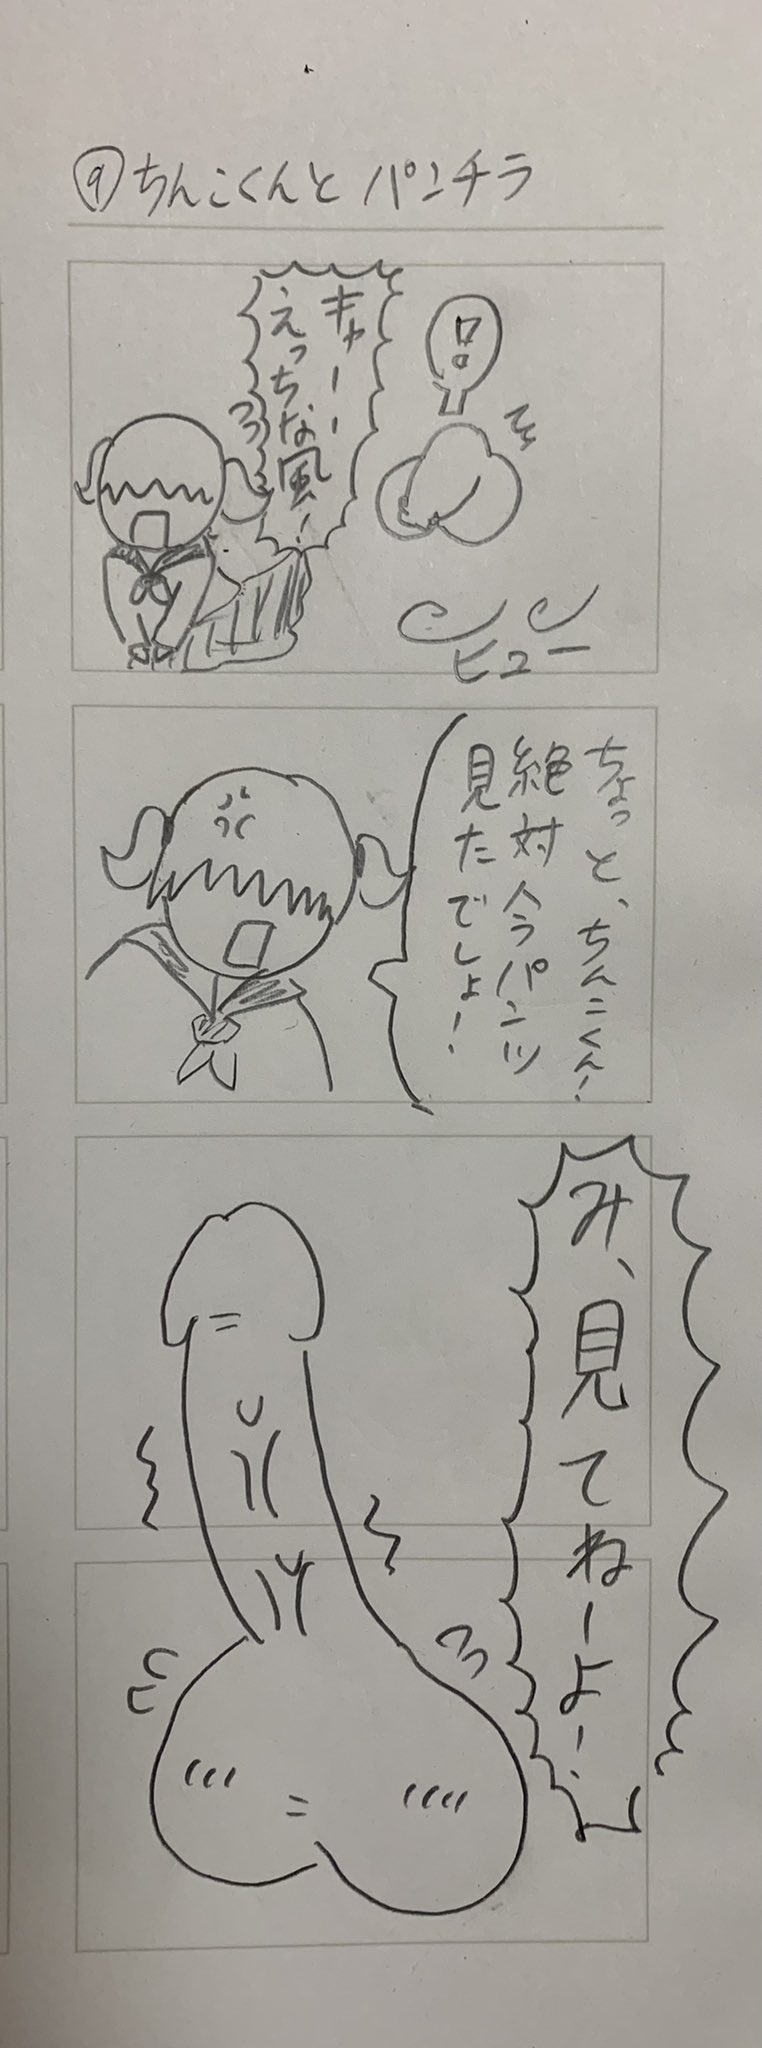 ⑨ちんこくんとパンチラ
キャーー
えっちな風!
ヒュー
ちょっと、ちんこくん!
絶対今パンツ
見たでしょ!
み、見てねーよー!